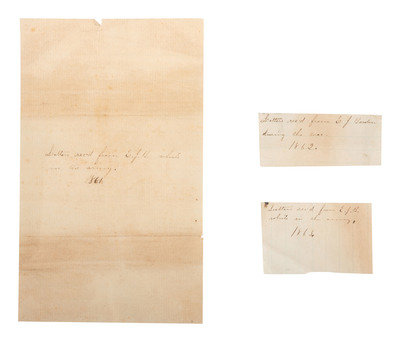 Letters rec'd from E. J. H. while
in the army.
186
Letters rec'd from E. J.
during the war.
1862.
Letters rec'd from E. J. H.
while in the army.
186